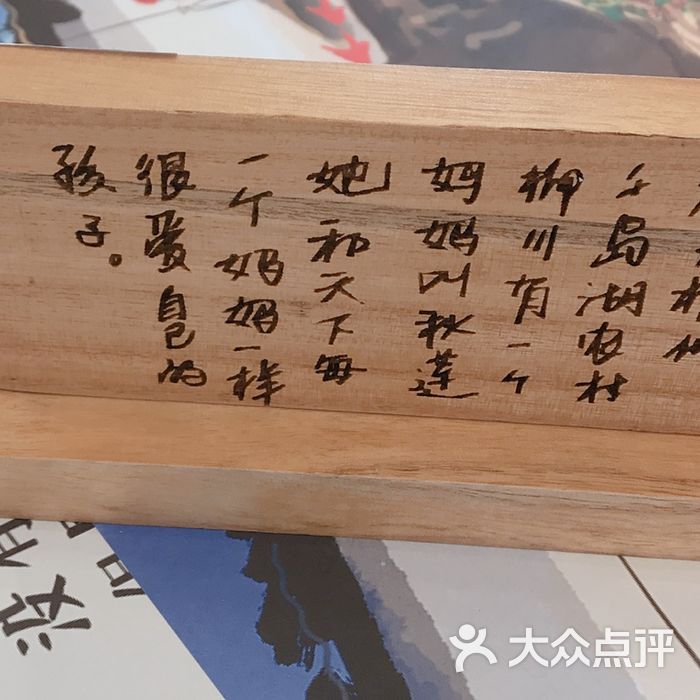 千岛湖农村
柳川有一个
妈妈叫秋莲
她和天下每
一个妈妈一样
很爱自己的
孩子。
没有
大众点评